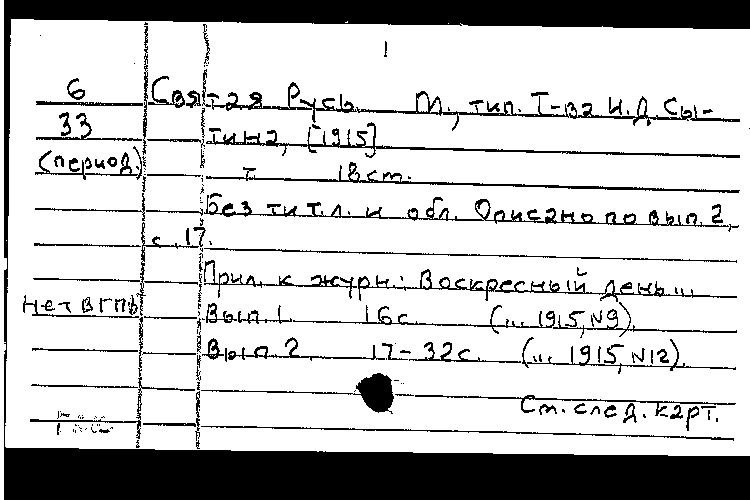 1
6 Святая Русь. М., тип. Т-ва И.Д. Сы-
33 тина, [1915]
(период.) т. 18 см.
Без тит. л. и обл. Описано по вып. 2,
с. 17.
Прил. к журн.: Воскресный день...
Нет в ГПБ Вып. 1. 16 с. (... 1915, N9).
Вып. 2. 17-32 с. (... 1915, N12).
См. след. карт.